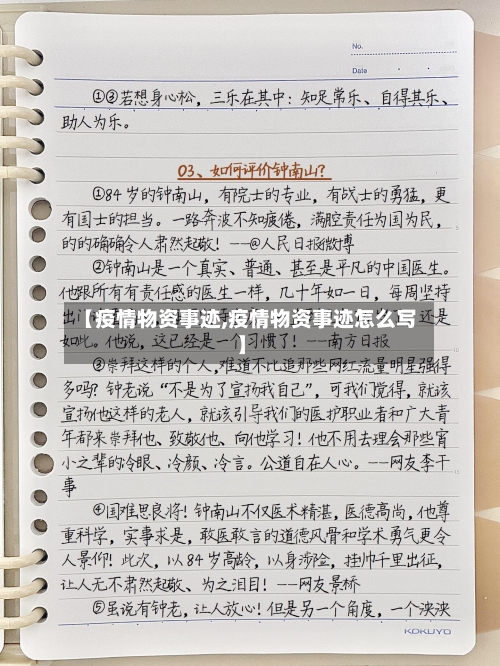 No.
Date
①③若想身心松，三乐在其中：知足常乐、自得其乐、
助人为乐。
03、如何评价钟南山？
①84岁的钟南山，有院士的专业，有战士的勇猛，更
有国士的担当。一路奔波不知疲倦，满腔责任为国为民，
的的确确令人肃然起敬！--@人民日报微博
②钟南山是一个真实、普通、甚至是平凡的中国医生。
他跟所有有责任感的医生一样，几十年如一日，每周坚持
出门
还是
【疫情物资事迹,疫情物资事迹怎么写
】
如此。他说，这已经是一个习惯了！--南方日报
③崇拜这样的个人,难道不比追那些网红流量明星强得
多吗？钟老说“不是为了宣扬我自己”，可我们觉得，就该
宣扬他这样的老人，就该引导我们的医护职业者和广大青
年都来崇拜他、致敬他、向他学习！他不用去理会那些宵
小之辈的冷眼、冷颜、冷言。公道自在人心。--网友李干
事
④国难思良将！钟南山不仅医术精湛，医德高尚，他尊
重科学，实事求是，敢医敢言的道德风骨和学术勇气更令
人景仰！此次，以84岁高龄，以身涉险，挂帅千里出征，
让人无不肃然起敬、为之泪目！--网友景桥
⑤虽说有钟老，让人放心！但是另一个角度，一个泱泱
KOKUYO